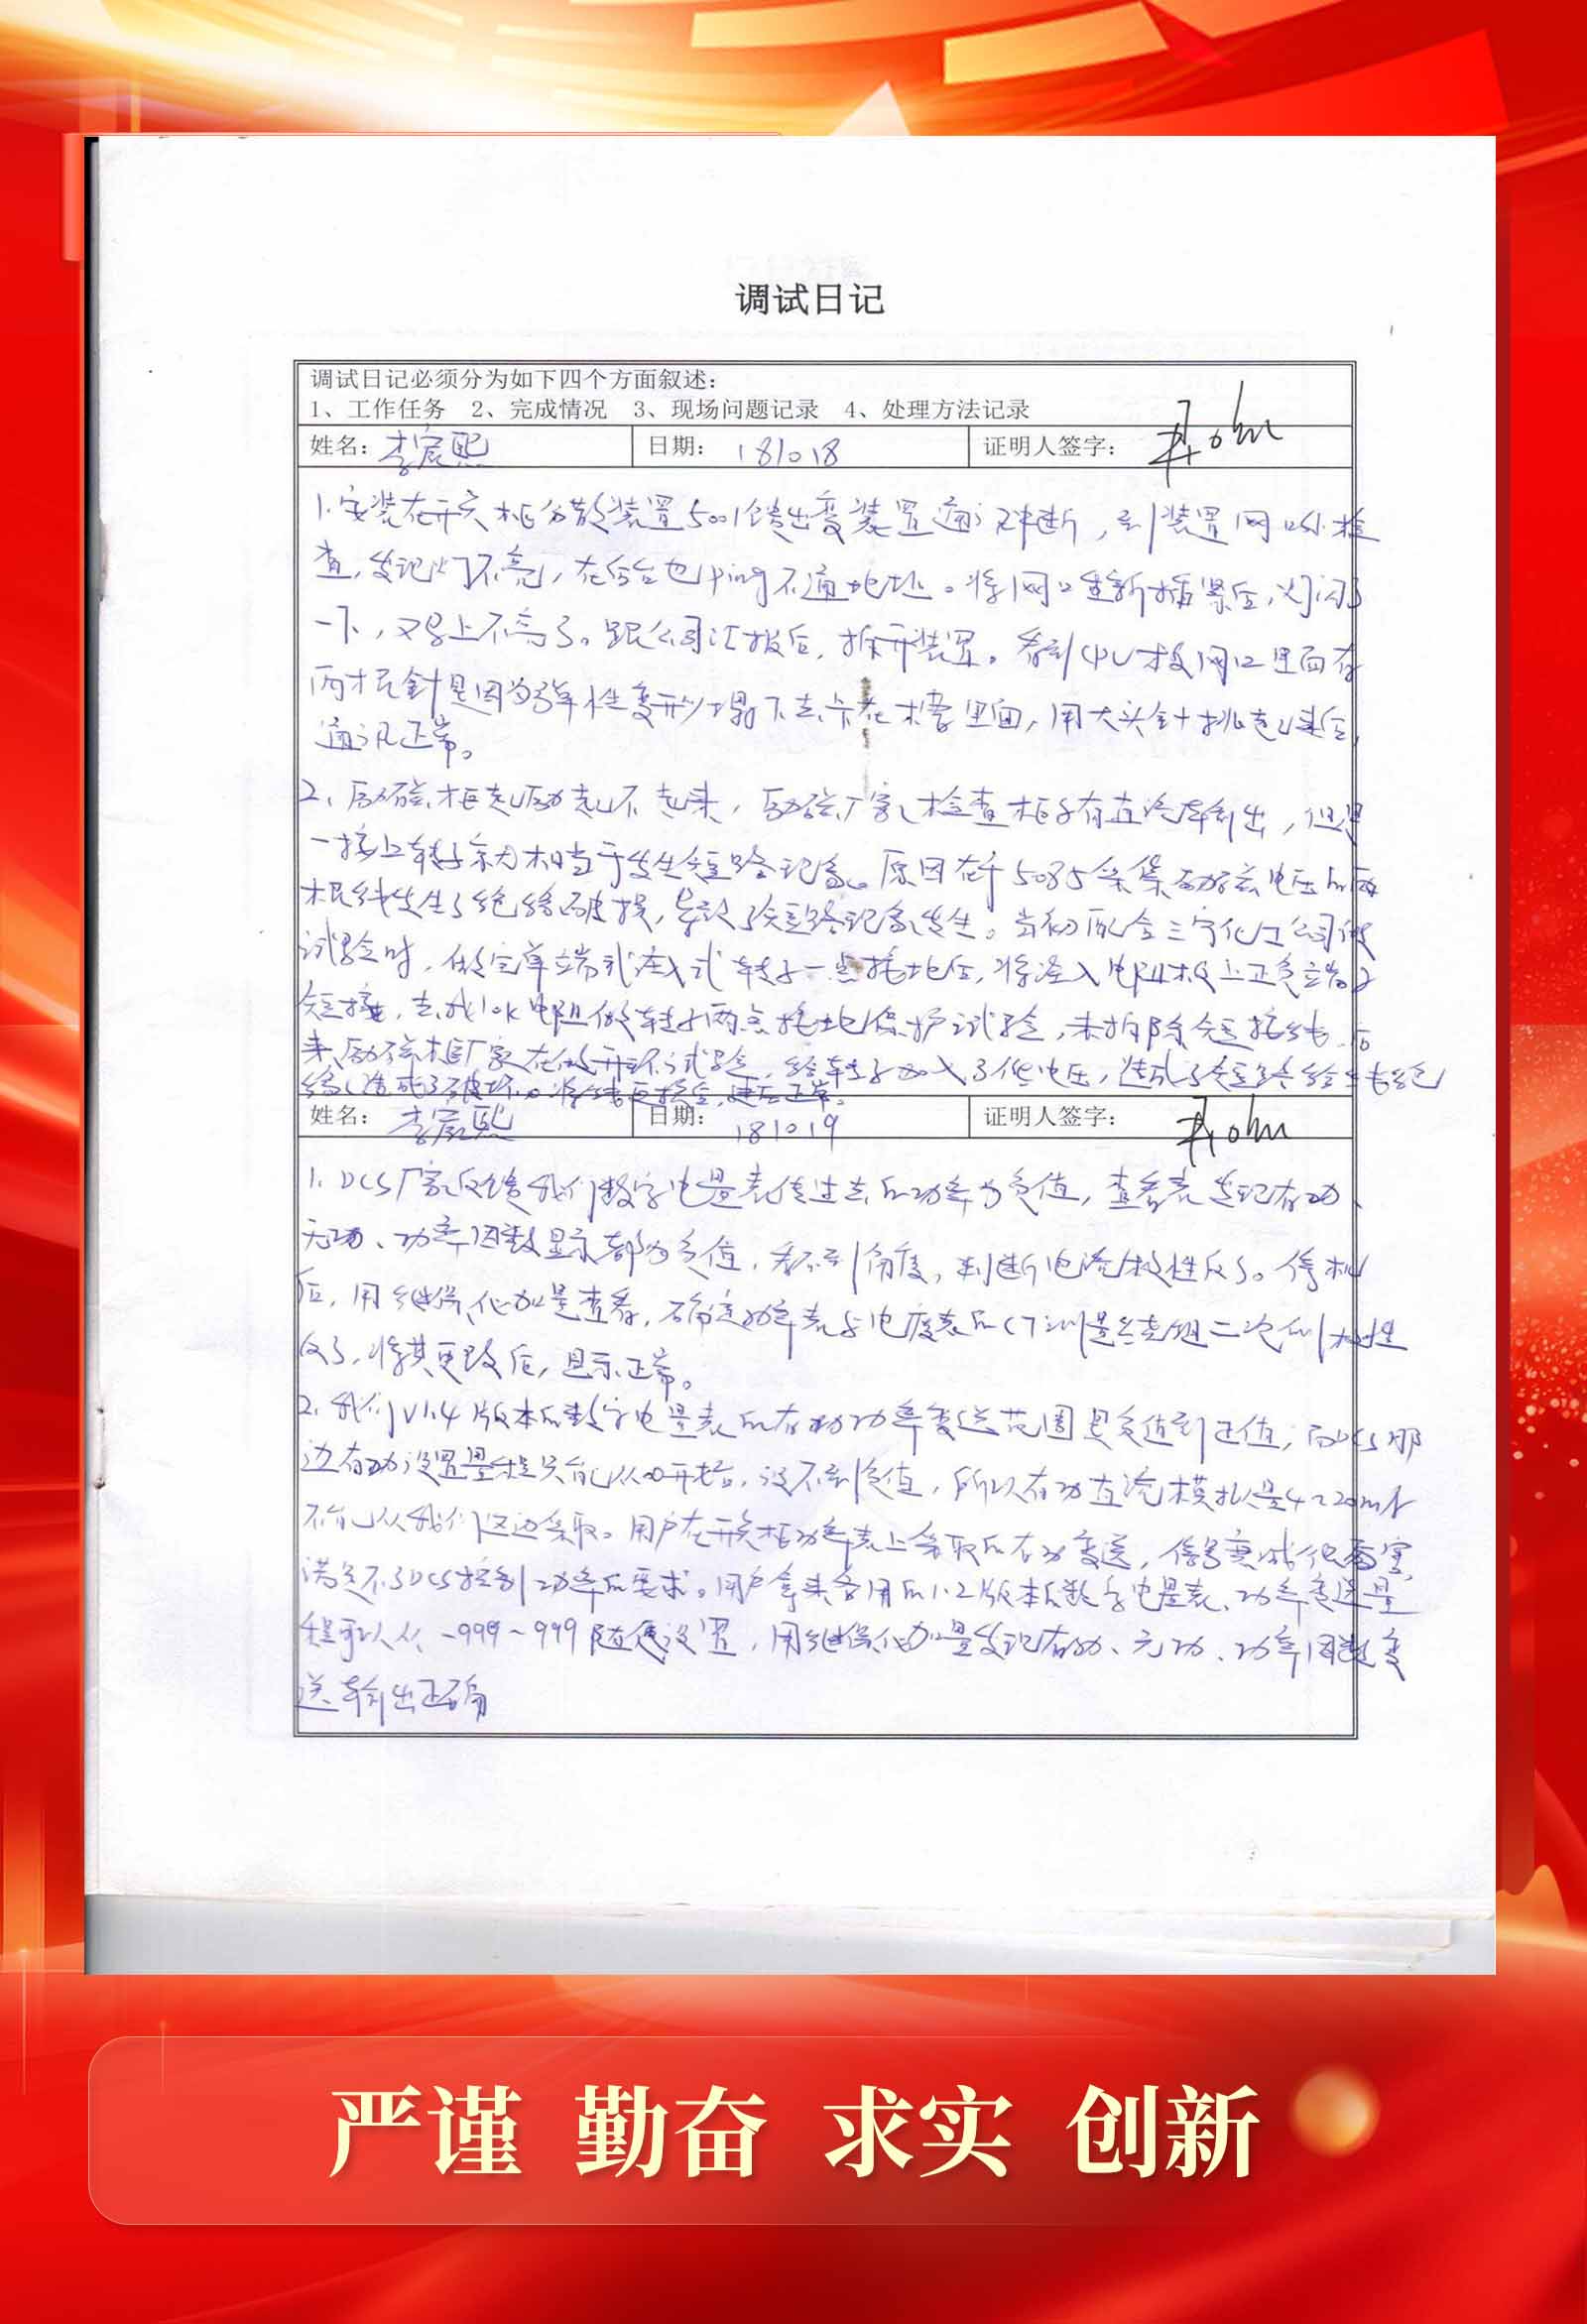 调试日记
调试日记必须分为如下四个方面叙述：
1、工作任务 2、完成情况 3、现场问题记录 4、处理方法记录
姓名：李宸熙 日期：181018 证明人签字：
1.安装在开关柜分散装置5001馈出变装置通讯中断，到装置网口处检
查，发现灯不亮，在后台也ping不通地址。将网口重新插紧后，灯闪了
一下，又马上不亮了。跟公司汇报后，拆开装置。看到CPU板网口里面有
两根针是因为弹性变形塌下去卡在槽里面，用大头针挑起来后，
通讯正常。
2、励磁柜起励起不起来，励磁厂家检查柜子有直流输出，但是
一接上转子来励相当于发生短路现象。原因在于5085采集励磁电压的两
根线发生了绝缘破损，导致了短路现象发生。当初配合三宁化工公司做
试验时，做完单端式注入式转子一点接地后，将注入电阻板上正负端子
短接，去找10k电阻做转子两点接地保护试验，未拆除短接线，后
来励磁柜厂家在做开环试验，给转子加入了低电压，造成了短路给线绝
缘造成了破坏。将线更换后，建压正常。
姓名：李宸熙 日期：181019 证明人签字：
1、DCS厂家反馈我们数字电量表传过去的功率为负值，查看表发现有功、
无功、功率因数显示都为负值，看不到角度，判断电流极性反了。停机
后，用继保仪加量查看，确定功率表与电度表的CT测量绕组二次侧极性
反了，将其更改后，显示正常。
2、我们V1.4版本的数字电量表的有功功率变送范围是负值到正值，而DCS那
边有功设置量程只能从0开始，设不到负值，所以有功直流模拟量4~20mA
不能从我们这边采取。用户在开关柜功率表上采取的有功变送，信号衰减很厉害，
满足不了DCS控制功率的要求。用户拿来备用的1.2版本的数字电量表，功率变送量
程可以从-999~999随便设置，用继保仪加量发现有功、无功、功率因数变
送输出正确
严谨 勤奋 求实 创新